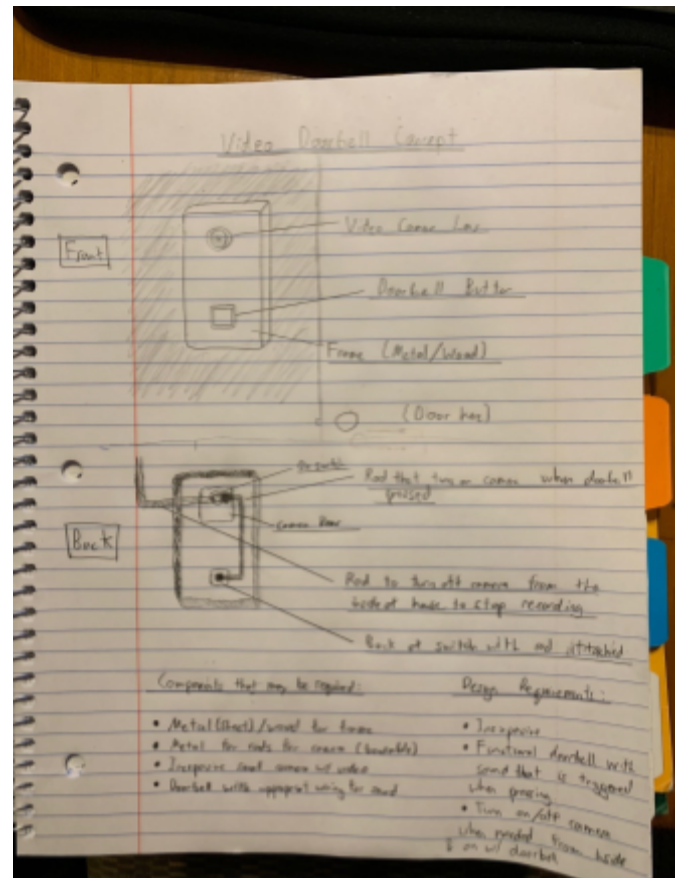 Video Doorbell Concept
Front
Video Camera Lens
Doorbell Button
Frame (Metal/Wood)
(Door
On switch
Rod that turns on camera when doorbell
pressed
Camera
Back
Rod to turn off camera from the
inside of house to stop recording
Back of switch with rod attached
Components that may be required:
• Metal (sheet)/wood for frame
• Metal for rods for camera (bendable)
• Inexpensive small camera w/ video
• Doorbell with wiring for sound
Design Requirements:
• Inexpensive
• Functional doorbell with
sound that is triggered
when pressing
• Turn on/off camera
when needed from inside
& on w/ doorbell